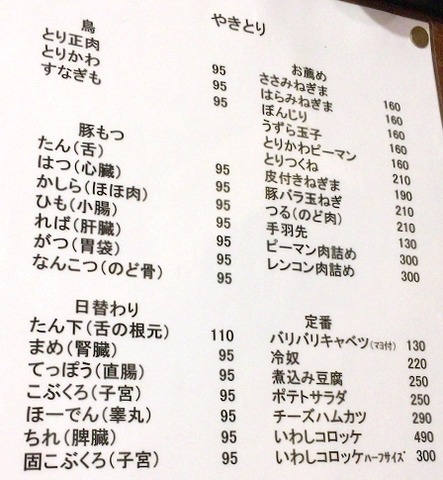 やきとり
鳥
とり正肉 95
とりかわ 95
すなぎも 95
豚もつ
たん(舌) 95
はつ(心臓) 95
かしら(ほほ肉) 95
ひも(小腸) 95
れば(肝臓) 95
がつ(胃袋) 95
なんこつ(のど骨) 95
日替わり
たん下(舌の根元) 110
まめ(腎臓) 95
てっぽう(直腸) 95
こぶくろ(子宮) 95
ほーでん(睾丸) 95
ちれ(脾臓) 95
固こぶくろ(子宮) 95
お薦め
ささみねぎま
はらみねぎま
ぼんじり 160
うずら玉子 160
とりかわピーマン 160
とりつくね 160
皮付きねぎま 210
豚バラ玉ねぎ 190
つる(のど肉) 210
手羽先 130
ピーマン肉詰め 300
レンコン肉詰め 300
定番
バリバリキャベツ(マヨ付) 130
冷奴 220
煮込み豆腐 250
ポテトサラダ 250
チーズハムカツ 290
いわしコロッケ 490
いわしコロッケハーフサイズ 300